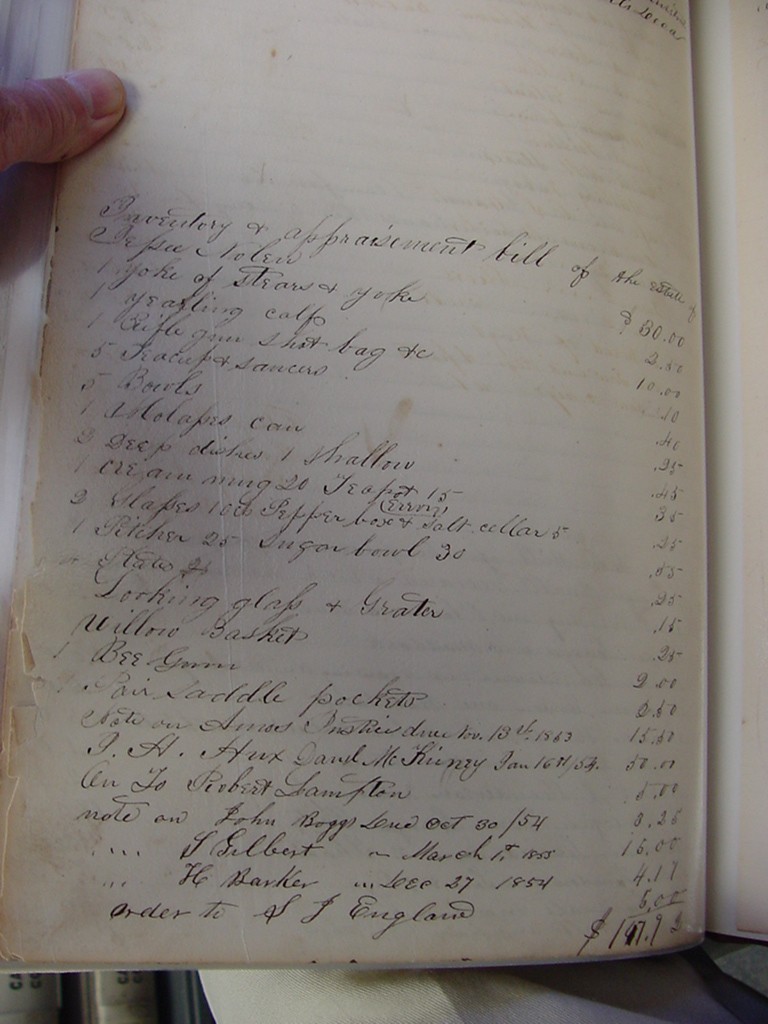 Inventory & appraisement bill of the estate of
Jesse Nolen
1 yoke of stears & yoke $30.00
1 yearling calf 2.50
1 Rifle gun shot bag &c 10.00
5 Teacups & saucers .10
5 Bowls .40
1 Molasses can .25
2 Deep dishes 1 shallow .45
1 cream mug 20 Teapot 15 35
2 Glasses Pepper box & Salt cellar 5 .25
(Error)
1 Pitcher 25 Sugar bowl 30 .55
Slates .25
Looking glass & Grater .15
Willow Basket .25
1 Bee Gum 2.00
Pair Saddle pockets
Note on Amos Justice due Nov. 13th 1853 15.50
J. H. Hux Danl McKinney Jan 16th/54. 50.00
On Jo Robert Lampton 5.00
note on John Boggs Due Oct 30/54
" S Gilbert " March 1st 1855 15.00
" H Barker " Dec 27 1854 4.17
order to S J England 5.00
$